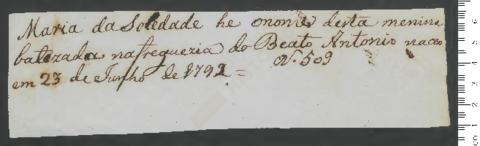 Maria da Soledade he onome desta menina
batizada nafreguezia do Beato Antonio naceo
em 23 de Junho de 1792 =
N. 509